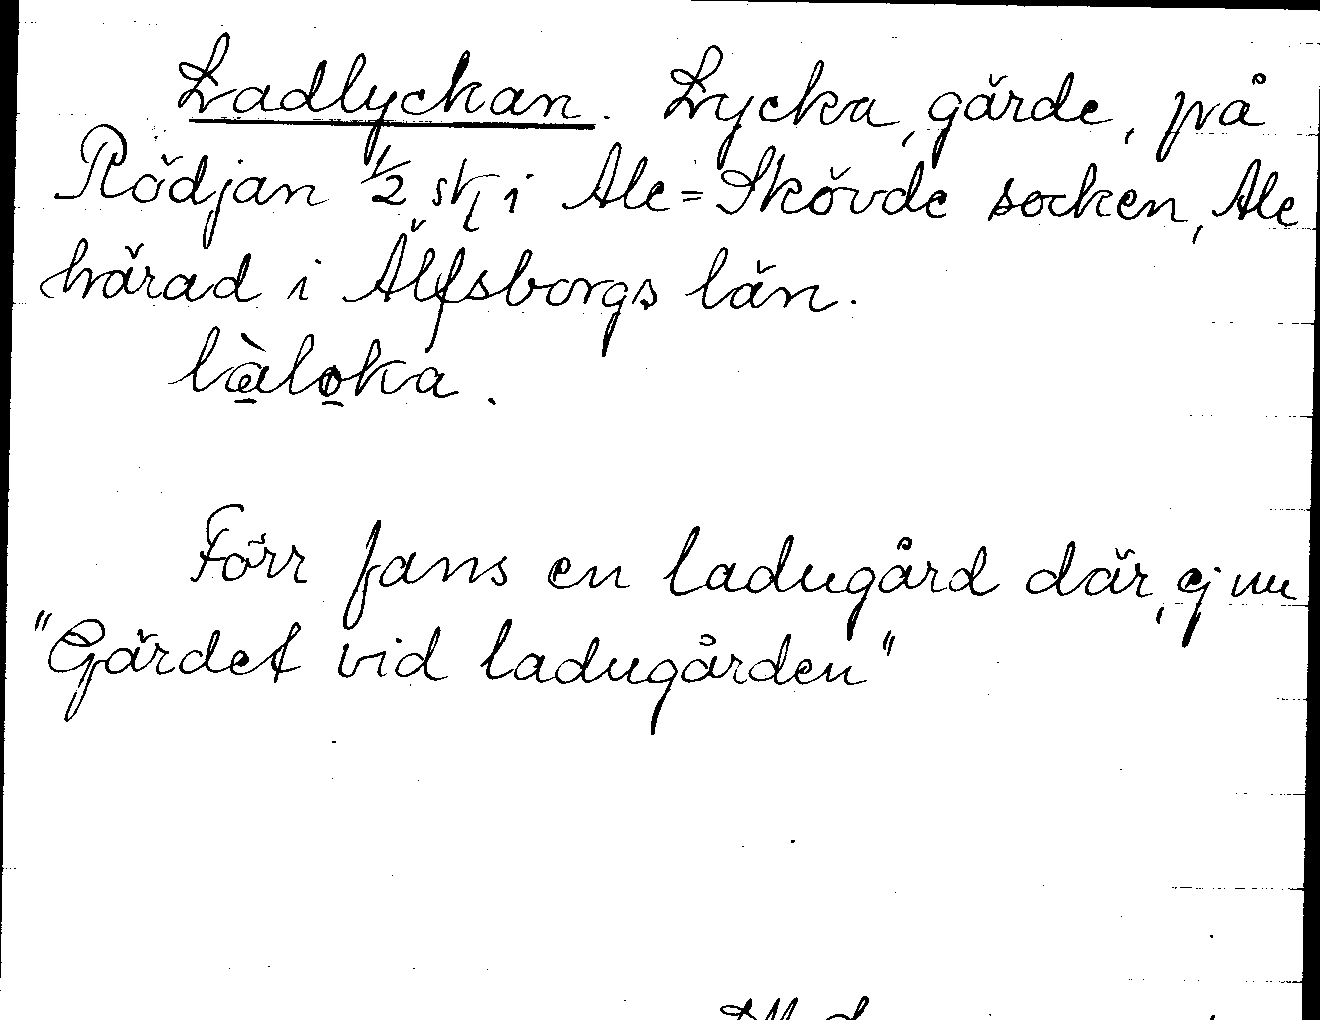 Ladlyckan. Lycka, gärde, på
Rödjan 1/2 sk, i Ale=Skövde socken, Ale
härad i Älfsborgs län.
làloka.
Förr fans en ladugård där, ej nu
"Gärdet vid ladugården"